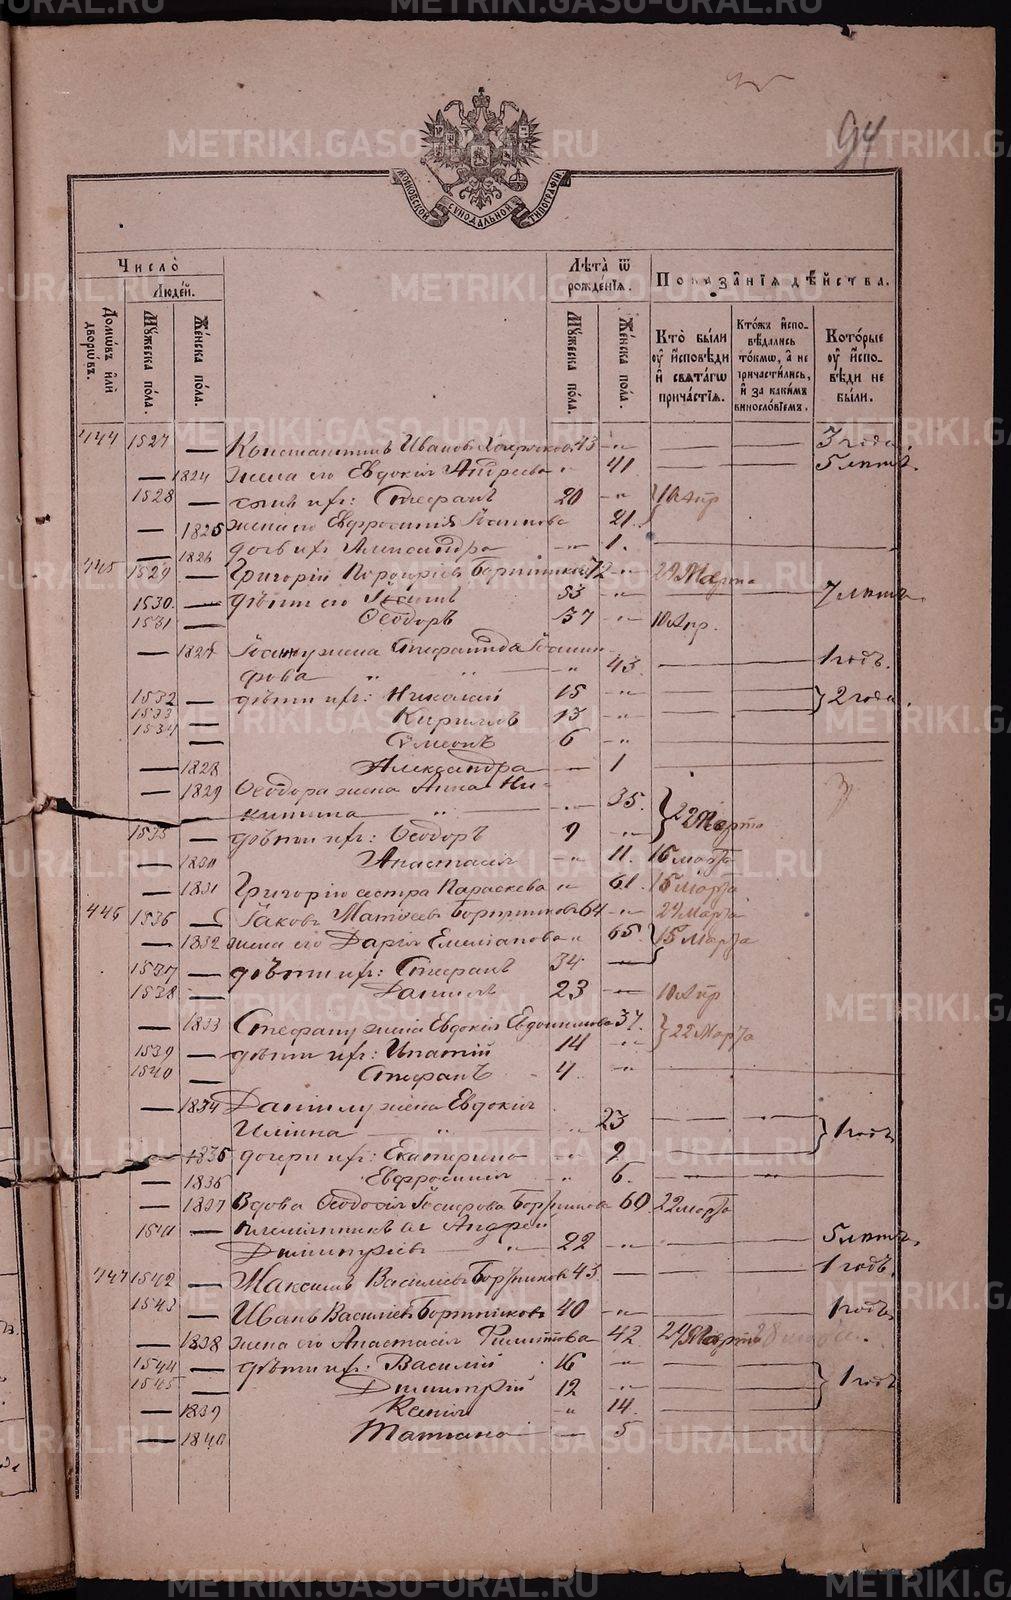 94
МОСКОВСКОЙ СѴНОДАЛЬНОЙ ТИПОГРАФІИ
Число̀
Людей.
Домѡвъ и҆лѝ дворѡвъ.
Мꙋжеска пола.
Же́нска по́ла.
Лѣта̀ ѿ рожде́нїѧ.
Мꙋжеска по́ла.
Же́нска по́ла.
Показа̑нїѧ дѣ́йства.
Кто̀ бы́ли ᲂу҆ и҆сповѣди и҆ свѧта́гѡ прича́стїѧ.
Кто́жъ и҆споведались то́кмѡ, а҆ не причасти́лись, и҆ за каки́мъ винослові́емъ.
Кото́рые ᲂу҆ и҆сповѣди не бы́ли.
444 1527 — Константинъ Ивановъ 43 — 3 года.
— 1824 жена его Евдокія Андреева 41 — 5 лѣтъ.
1528 — сынъ ихъ: Стефанъ 20 — 10 Апр
— 1825 жена его Евфросинія Іоаннова 21.
— 1826 дочь ихъ Александра 1.
445 1529 — Григорій Бортниковъ 72 — 29 Марта
1530. — дѣти его 53 — 7 лѣтъ
1531 — Ѳеодоръ 37 — 10 Апр.
— 1827 жена Стефанида
фова 43 — 1 годъ.
1532 — дѣти ихъ: Николай 15 — 2 года.
1533 — Кириллъ 13
1534 — Сѵмеонъ 6
— 1828 Александра 1
— 1829 Ѳеодора жена Анна Ни-
китина 35. 22 Марта
1535 — дѣти ихъ: Ѳеодоръ 9
— 1830 Анастасія 11. 16 марта
— 1831 Григорію сестра Параскева 61. 15 Марта
446 1536 — Іаковъ Матѳеевъ Бортниковъ 64 — 29 Марта
— 1832 жена его Дарія Емеліанова 65. 15 Марта
1537 — дѣти ихъ: Стефанъ 34
1538 — Даніилъ 23 — 10 Апр
— 1833 Стефану жена Евдокія Евдокимова 37. 22 Марта
1539 — дѣти ихъ: Ипатій 14
1540 — Стефанъ 4
— 1834 Даніилу жена Евдокія
Иліина 23 — 1 годъ
— 1835 дочери ихъ: Екатерина 9
— 1836 Евфросинія 6.
— 1837 Вдова Ѳеодосія Бортникова 60. 22 марта
1541 — племянникъ ея Андрей
Димитріевъ 22 — 5 лѣтъ.
447 1542 — Максимъ Василіевъ Бортниковъ 43 — 1 годъ.
1543 — Иванъ Василіевъ Бортниковъ 40 — 1 годъ
— 1838 жена его Анастасія Филиппова 42
1544 — дѣти ихъ: Василій 16 — 1 годъ
1545 — Димитрій 12
— 1839 Ксенія 14.
— 1840 Татіана 5
METRIKI.GASO-URAL.RU